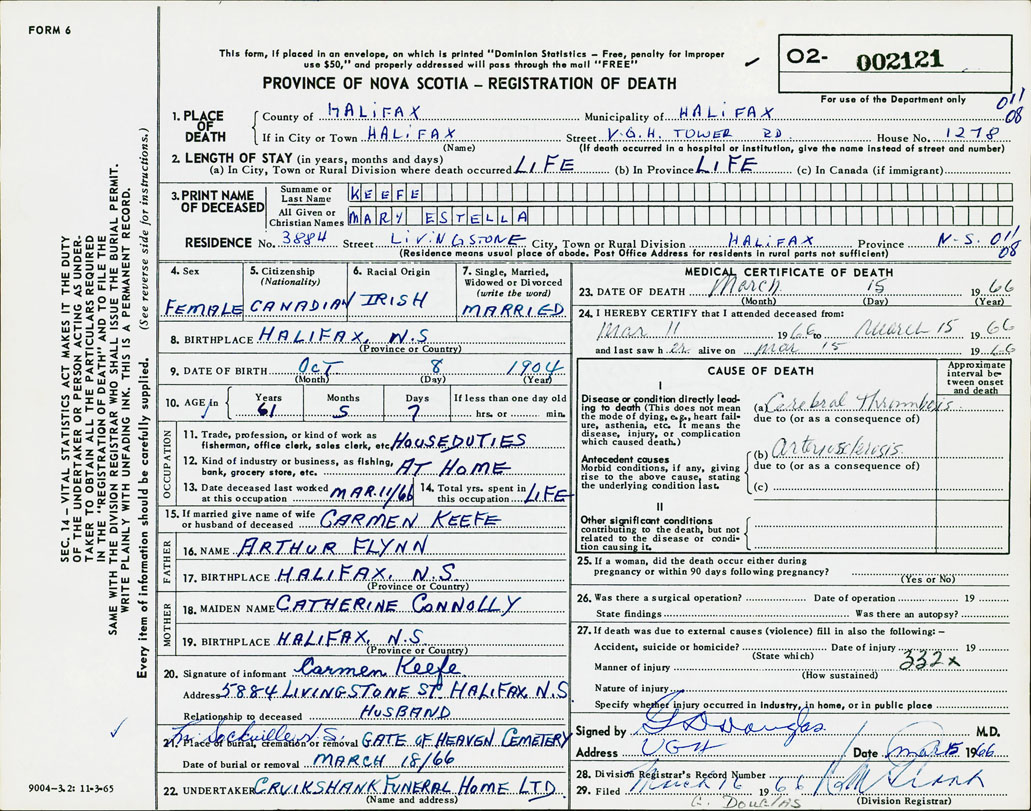 FORM 6
This form, if placed in an envelope, on which is printed "Dominion Statistics – Free, penalty for improper
use $50," and properly addressed will pass through the mail "FREE"
O2- 002121
PROVINCE OF NOVA SCOTIA – REGISTRATION OF DEATH
For use of the Department only
011
08
1. PLACE OF DEATH County of HALIFAX Municipality of HALIFAX
If in City or Town HALIFAX Street V.G.H. TOWER RD. House No. 1278
(Name) (If death occurred in a hospital or institution, give the name instead of street and number)
2. LENGTH OF STAY (in years, months and days)
(a) In City, Town or Rural Division where death occurred LIFE (b) In Province LIFE (c) In Canada (if immigrant)
3. PRINT NAME OF DECEASED
Surname or Last Name KEEFE
All Given or Christian Names MARY ESTELLA
RESIDENCE No. 3884 Street LIVINGSTONE City, Town or Rural Division HALIFAX Province N.S. 011
(Residence means usual place of abode. Post Office Address for residents in rural parts not sufficient) 08
4. Sex
FEMALE
5. Citizenship
(Nationality)
CANADIAN
6. Racial Origin
IRISH
7. Single, Married,
Widowed or Divorced
(write the word)
MARRIED
8. BIRTHPLACE HALIFAX, N.S
(Province or Country)
9. DATE OF BIRTH Oct 8 1904
(Month) (Day) (Year)
10. AGE in Years 61 Months 5 Days 7 If less than one day old
hrs. or min.
OCCUPATION
11. Trade, profession, or kind of work as
fisherman, office clerk, sales clerk, etc. HOUSEDUTIES
12. Kind of industry or business, as fishing,
bank, grocery store, etc. AT HOME
13. Date deceased last worked
at this occupation MAR.11/66
14. Total yrs. spent in
this occupation LIFE
15. If married give name of wife
or husband of deceased CARMEN KEEFE
FATHER
16. NAME ARTHUR FLYNN
17. BIRTHPLACE HALIFAX, N.S.
(Province or Country)
MOTHER
18. MAIDEN NAME CATHERINE CONNOLLY
19. BIRTHPLACE HALIFAX, N.S
(Province or Country)
20. Signature of informant Carmen Keefe
Address 5884 LIVINGSTONE ST. HALIFAX N.S
Relationship to deceased HUSBAND
Sackville N.S.
21. Place of burial, cremation or removal GATE OF HEAVEN CEMETERY
Date of burial or removal MARCH 18/66
22. UNDERTAKER CRUIKSHANK FUNERAL HOME LTD
(Name and address)
MEDICAL CERTIFICATE OF DEATH
23. DATE OF DEATH March 15 1966
(Month) (Day) (Year)
24. I HEREBY CERTIFY that I attended deceased from:
Mar 11 1966 to March 15 1966
and last saw her alive on Mar 15 1966
CAUSE OF DEATH
Approximate
interval be-
tween onset
and death
I
Disease or condition directly lead-
ing to death (This does not mean
the mode of dying, e.g., heart fail-
ure, asthenia, etc. It means the
disease, injury, or complication
which caused death.)
(a) Cerebral Thrombosis
due to (or as a consequence of)
Antecedent causes
Morbid conditions, if any, giving
rise to the above cause, stating
the underlying condition last.
(b) Arteriosclerosis
due to (or as a consequence of)
(c)
II
Other significant conditions
contributing to the death, but not
related to the disease or condi-
tion causing it.
25. If a woman, did the death occur either during
pregnancy or within 90 days following pregnancy?
(Yes or No)
26. Was there a surgical operation? Date of operation 19
State findings Was there an autopsy?
27. If death was due to external causes (violence) fill in also the following: –
Accident, suicide or homicide? Date of injury 19
(State which)
332x
Manner of injury
(How sustained)
Nature of injury
Specify whether injury occurred in Industry, in home, or in public place
Signed by G D Douglas M.D.
Address VGH Date Mar 15 1966
28. Division Registrar's Record Number
29. Filed March 16 1966
(Division Registrar)
G. DOUGLAS
SEC. 14 – VITAL STATISTICS ACT MAKES IT THE DUTY
OF THE UNDERTAKER OR PERSON ACTING AS UNDER-
TAKER TO OBTAIN ALL THE PARTICULARS REQUIRED
IN THE "REGISTRATION OF DEATH" AND TO FILE THE
SAME WITH THE DIVISION REGISTRAR WHO SHALL ISSUE THE BURIAL PERMIT.
WRITE PLAINLY WITH UNFADING INK. THIS IS A PERMANENT RECORD.
Every item of information should be carefully supplied. (See reverse side for instructions.)
9004-3.2: 11-3-65